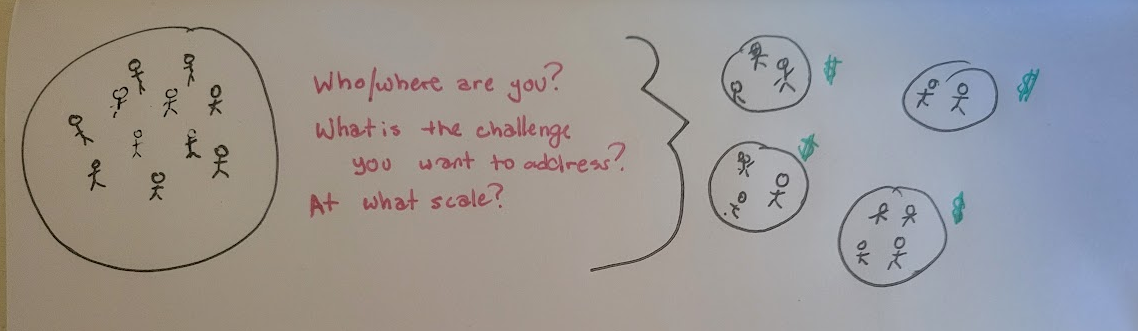 Who/where are you?
What is the challenge
you want to address?
At what scale?
$
$
$
$